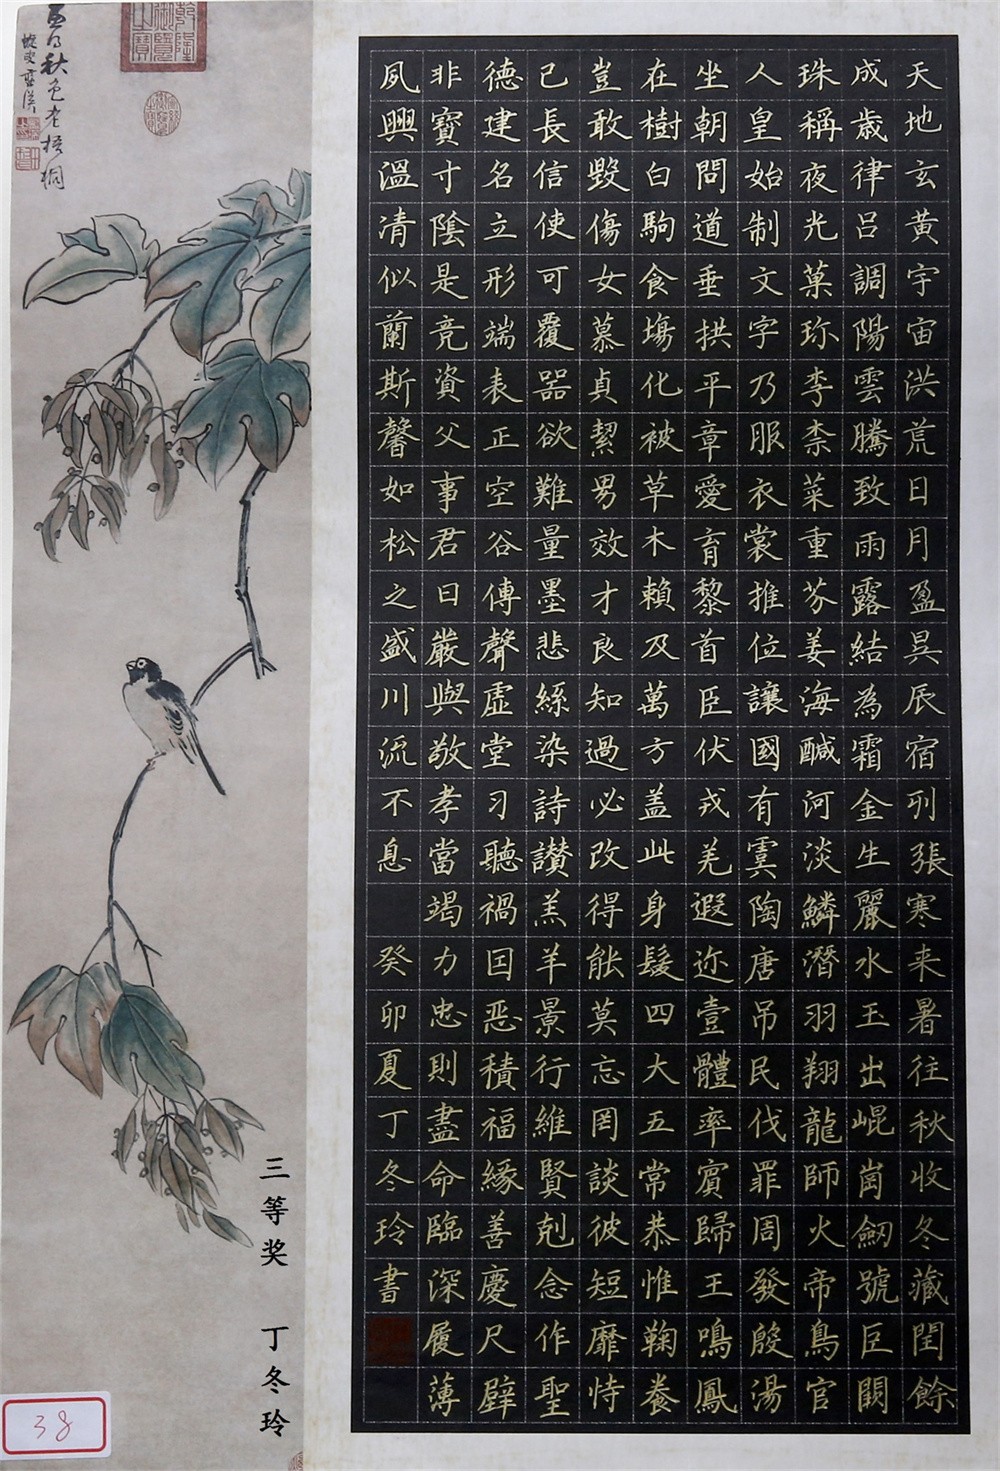 天地玄黃宇宙洪荒日月盈昃辰宿列張寒来暑往秋收冬藏閏餘
成歲律呂調陽雲騰致雨露結為霜金生麗水玉出崐崗劒號巨闕
珠稱夜光菓珎李柰菜重芥姜海醎河淡鱗潛羽翔龍師火帝鳥官
人皇始制文字乃服衣裳推位讓國有虞陶唐吊民伐罪周發殷湯
坐朝問道垂拱平章愛育黎首臣伏戎羌遐迩壹體率賓歸王鳴鳳
在樹白駒食場化被草木賴及萬方盖此身髮四大五常恭惟鞠養
豈敢毀傷女慕貞絜男效才良知過必改得能莫忘罔談彼短靡恃
己長信使可覆器欲難量墨悲絲染詩讃羔羊景行維賢剋念作聖
德建名立形端表正空谷傳聲虛堂习聽禍囙恶積福緣善慶尺璧
非寶寸陰是竞資父事君曰嚴與敬孝當竭力忠則盡命臨深履薄
夙興溫清似蘭斯馨如松之盛川流不息
癸卯夏丁冬玲書
乾隆御覽之寶
秋色老梧桐
三等奖 丁冬玲
38